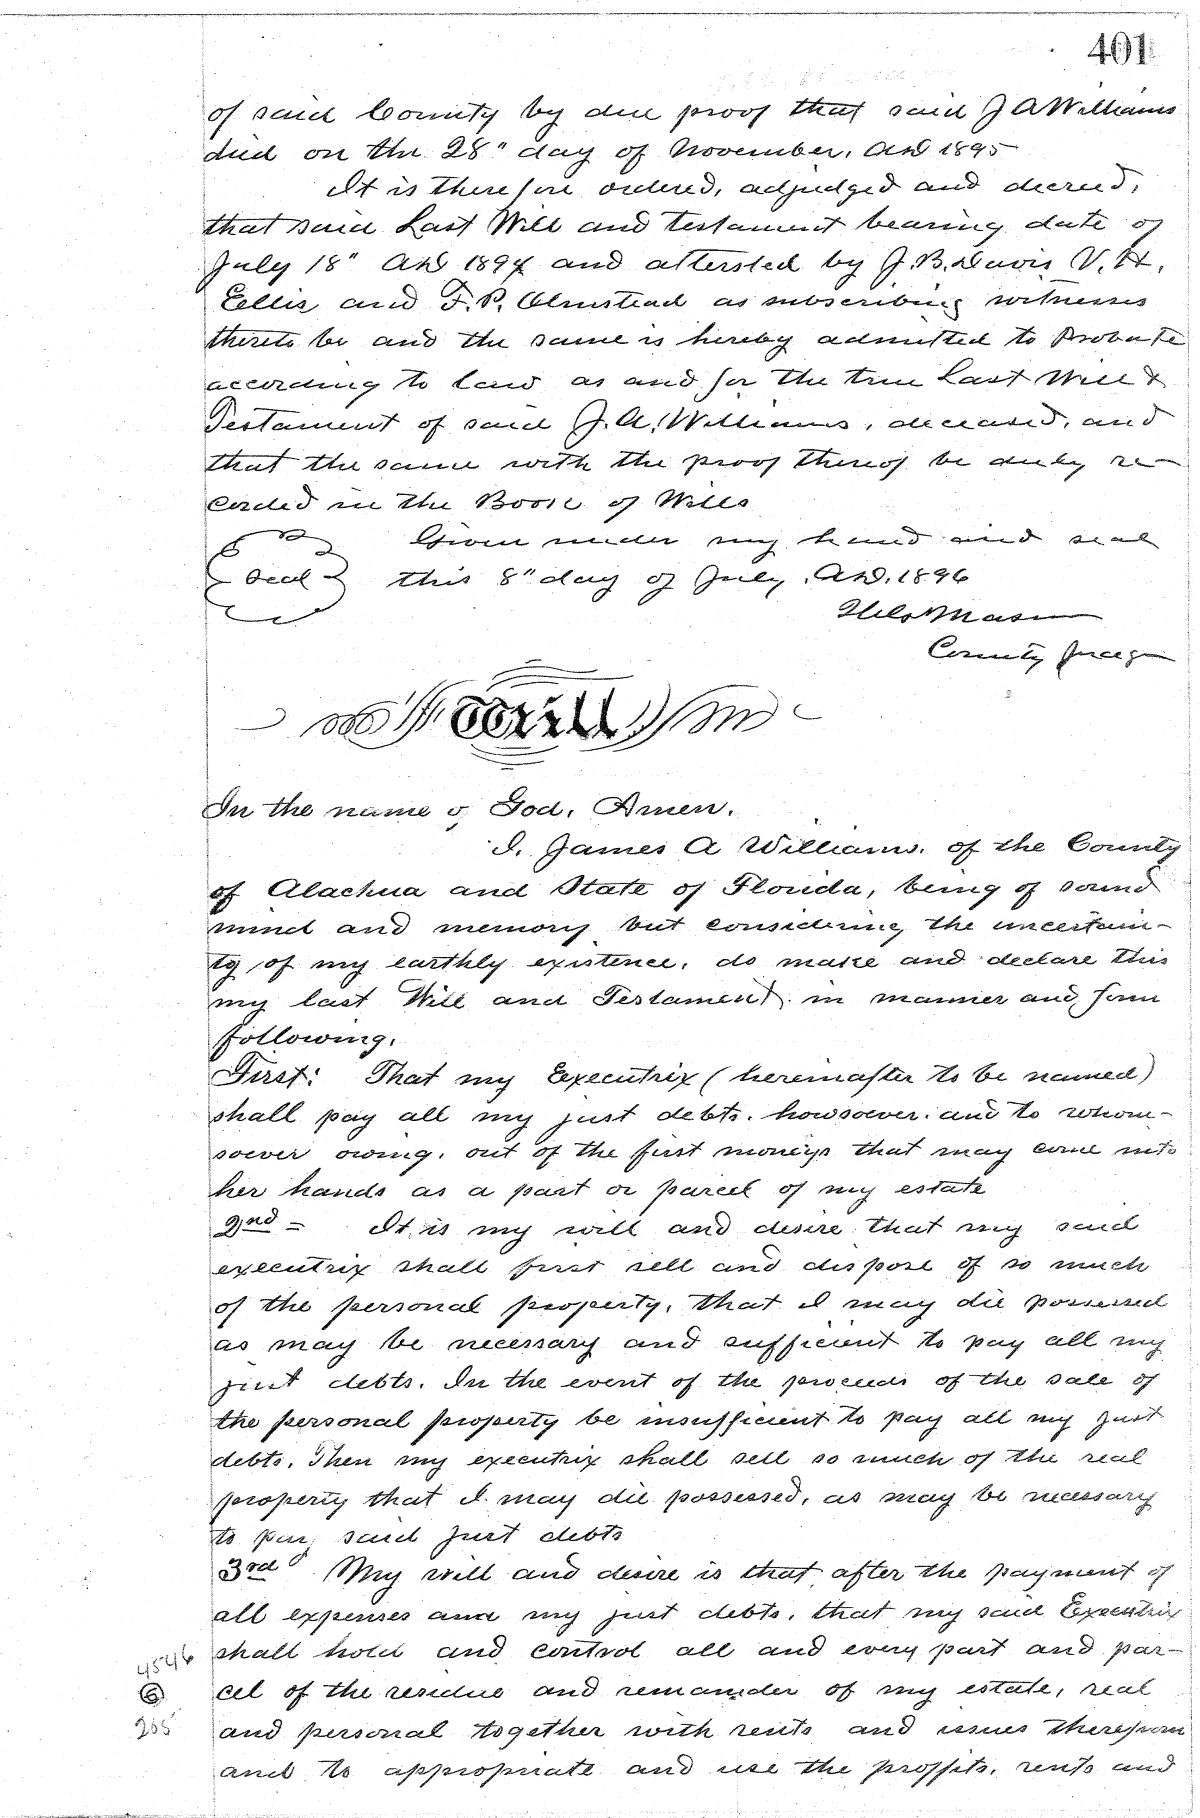 401
of said County by due proof that said J A Williams
died on the 28" day of November, AD 1895
It is therefore ordered, adjudged and decreed,
that said Last Will and testament bearing date of
July 18" AD 1894 and attersted by J. B. Davis V. H.
Ellis and F. P. Olmstead as subscribing witnesses
thereto be and the same is hereby admitted to Probate
according to law as and for the true Last Will &
Testament of said J. A. Williams, deceased, and
that the same with the proof thereof be duly re-
corded in the Book of Wills
Given under my hand and seal
Seal this 8" day of July, AD. 1896
Mason
County Judge
Will
In the name of God, Amen.
I, James A Williams, of the County
of Alachua and State of Florida, being of sound
mind and memory but considering the uncertain-
ty of my earthly existence, do make and declare this
my last Will and Testament, in manner and form
following.
First: That my Executrix (hereinafter to be named)
shall pay all my just debts, howsoever, and to whom-
soever owing, out of the first moneys that may come into
her hands as a part or parcel of my estate
2nd - It is my will and desire that my said
executrix shall first sell and dispose of so much
of the personal property, that I may die possessed
as may be necessary and sufficient to pay all my
just debts. In the event of the proceeds of the sale of
the personal property be insufficient to pay all my just
debts, Then my executrix shall sell so much of the real
property that I may die possessed, as may be necessary
to pay said just debts
3rd My will and desire is that after the payment of
all expenses and my just debts, that my said Executrix
shall hold and control all and every part and par-
cel of the residue and remainder of my estate, real
and personal together with rents and issues therefrom
and to appropriate and use the proffits, rents and
4546
6
205